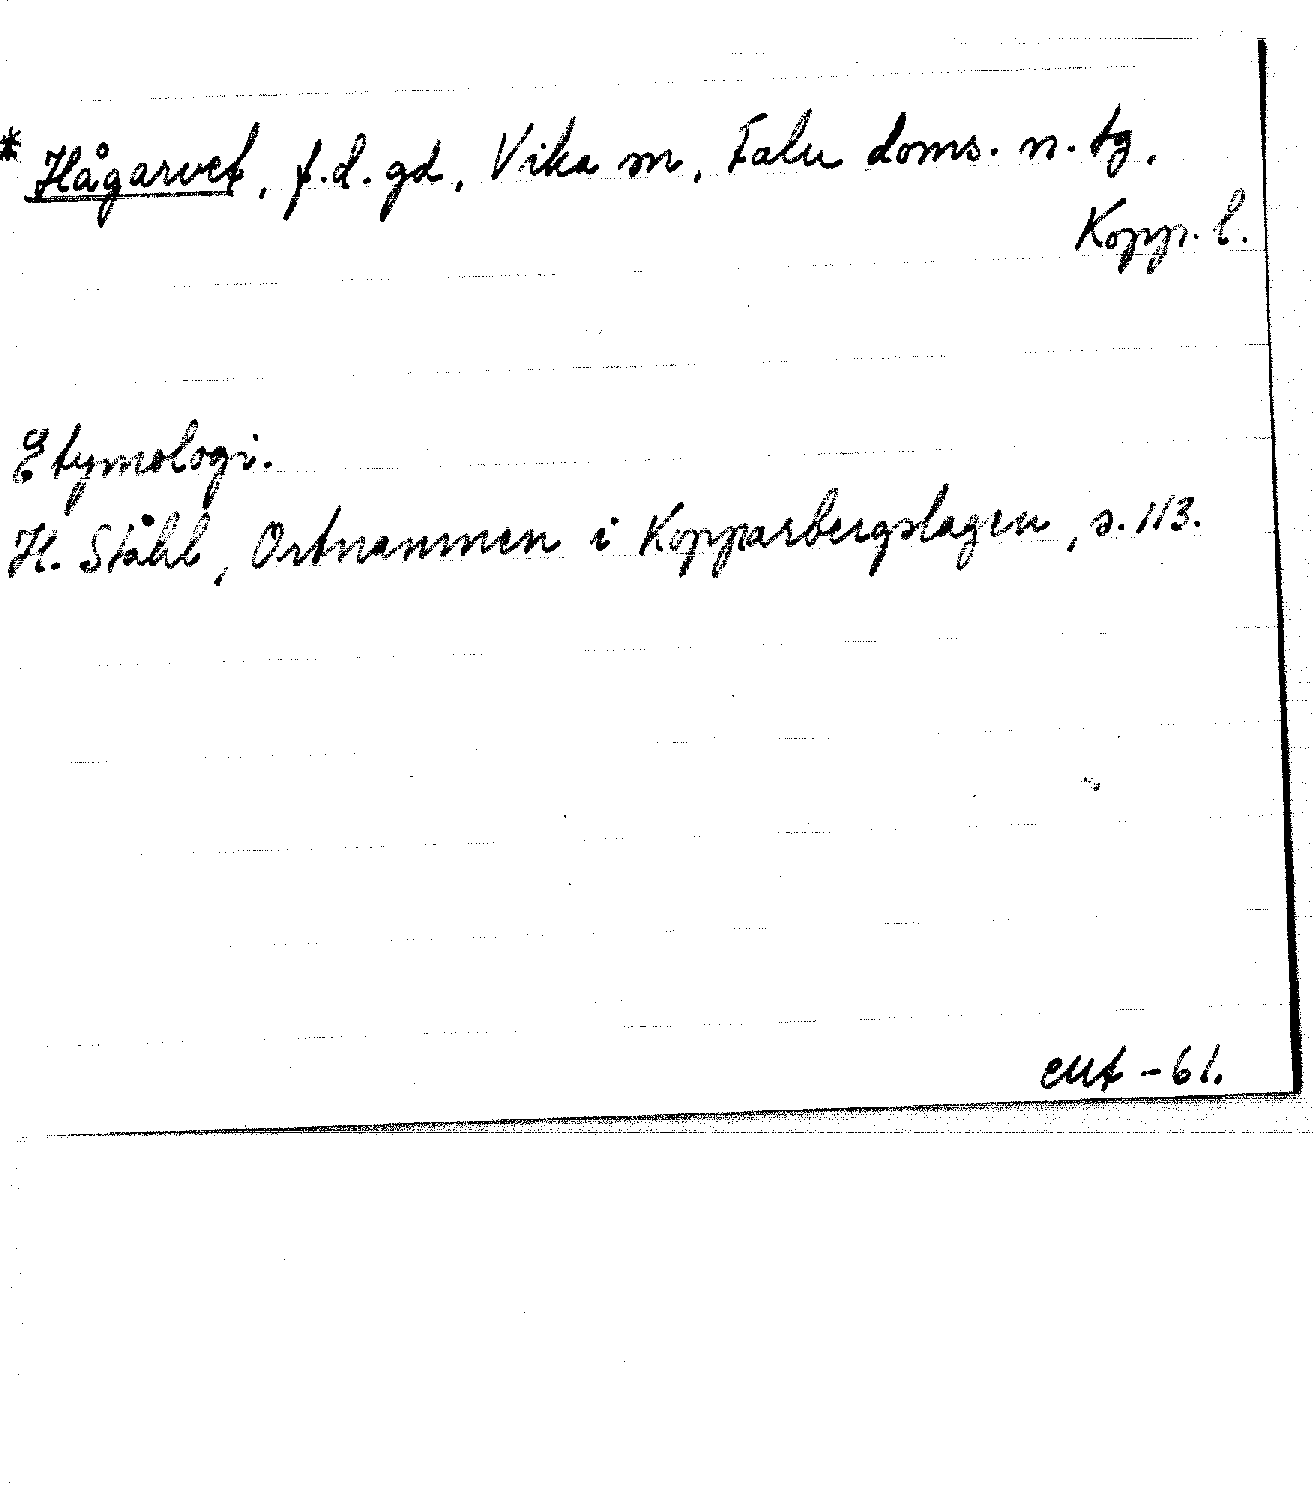 * Hågarvet, f.d. gd, Vika sn, Falu doms. n. tg.
Kopp. l.
Etymologi.
H. Ståhl, Ortnamnen i Kopparbergslagen, s. 113.
-61.